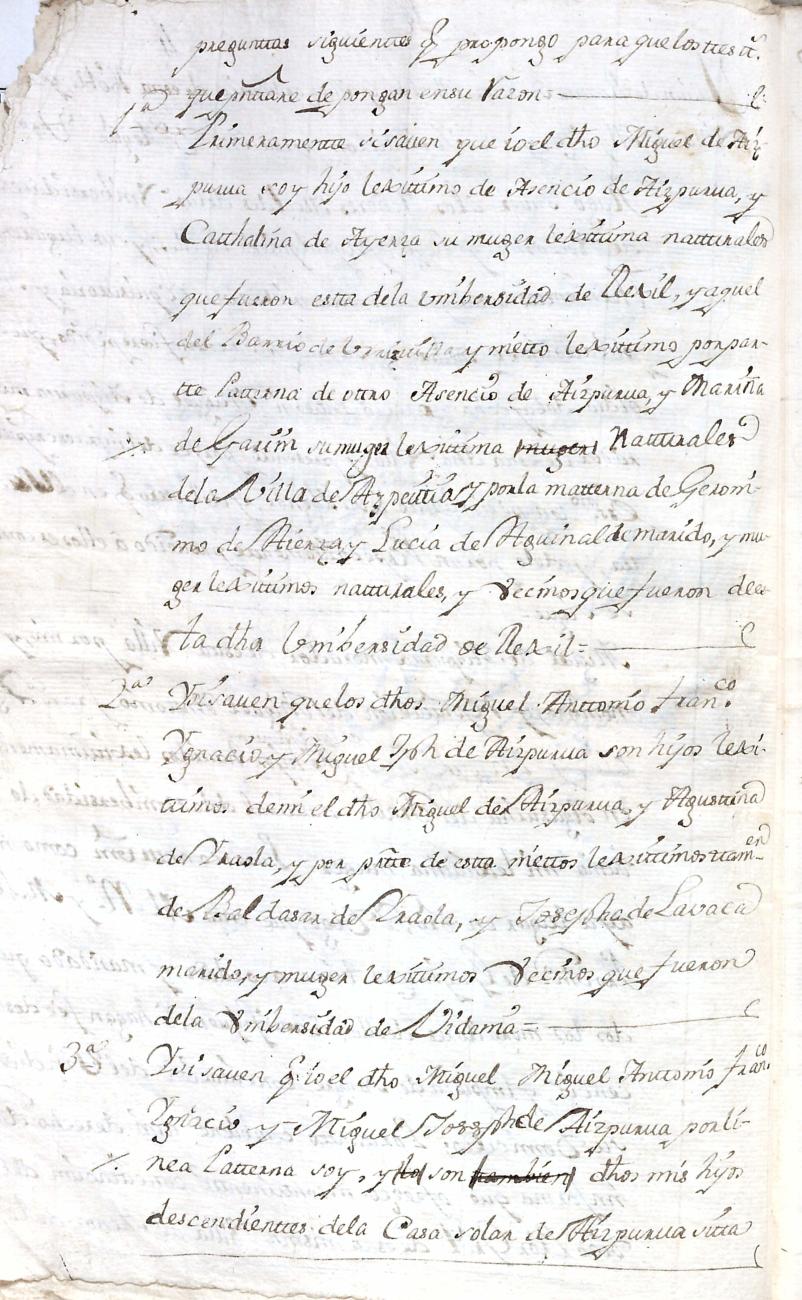 pregunttas siguienttes q̃ propongo para que los ttestt.ˢ
que pnttare depongan en su Razon=
1ª Primeramentte si saven que io el dho Miguel de Aiz
purua soy hijo lexittimo de Asencio de Aizpurua, y
Catthalina de Ayerza su muger lexittima natturales
que fueron estta dela Vnibersidad de Rexil, y aquel
del Barrio de y nietto lexittimo por par-
tte Patterna de ottro Asencio de Aizpurua, y Mariña
de Garin su muger lexittima muger Natturales
dela Villa de Azpeittia, y por la matterna de Geroni-
mo de Aierza y Lucia de Aguinalde marido, y mu-
ger lexittimos natturales, y Vecinos que fueron de es-
ta dha Vnibersidad de Rexil=
2ª Ysi saven que los dhos Miguel Anttonio Fran.co
Ygnacio, y Miguel Jph de Aizpurua son hijos lexi-
ttimos de mi el dho Miguel de Aizpurua, y Agusttina
de Yraola, y por ptte de estta niettos lexittimos ttamen
de Baldasar de Yraola, y Josepha de Lavaca
marido, y muger lexittimos Vecinos que fueron
dela Vnibersidad de Vidania=
3ª Ysi saven q̃ io el dho Miguel Miguel Anttonio Fran.co
Ygnacio y Miguel Joseph de Aizpurua por li-
nea Patterna soy, y lo son tambien dhos mis hijos
descendienttes dela Casa solar de Aizpurua sitta